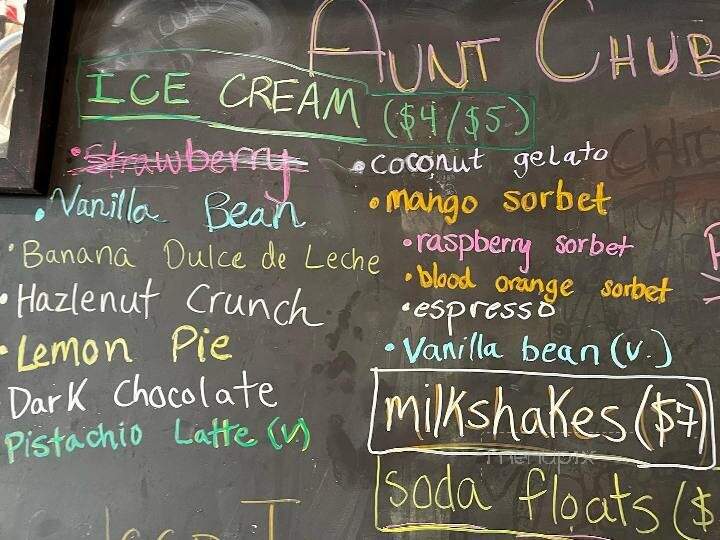 AUNT CHUB
ICE CREAM ($4/$5)
• Strawberry
• Vanilla Bean
• Banana Dulce de Leche
• Hazlenut Crunch
• Lemon Pie
Dark Chocolate
Pistachio Latte (V)
• coconut gelato
• mango sorbet
• raspberry sorbet
• blood orange sorbet
• espresso
• Vanilla bean (v.)
milkshakes ($7)
soda floats ($
menupix